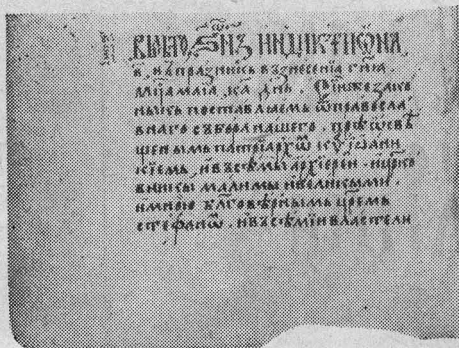 ВЬЛѢТО, ҂ЅѠН҃З ИНДИКТИѠНА
в҃. въпразникь възнесенїа г҃нꙗ.
м҃ца маїа, к҃а дн҃ь. Сїижезако
ныкь поставлꙗемь ѿправосла
внаго събора нашего. прѣѡсвѣ
щенымь патрїархѡⷨ кѵ҃ іѡани
кїемь, ивъсѣмы архїереи. ицрко
вникы малимы ивеликыми.
имною бл҃говѣрнымь ц҃ремь
стефанѡⷨ. ивъсѣмїи властели